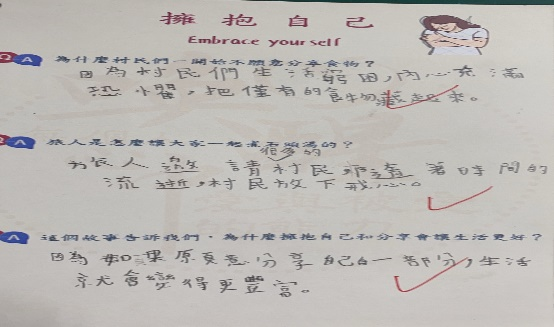 擁抱自己
Embrace yourself
Q A 為什麼村民們一開始不願意分享食物？
因為村民們生活窮困,內心充滿
恐懼,把僅有的食物藏起來。
A 旅人是怎麼讓大家一起煮湯的？
很多的
旅人 邀請村民 著時間的
流逝,村民放下戒心。
A 這個故事告訴我們，為什麼擁抱自己和分享會讓生活更好？
因為如果願意分享自己的一部分,生活
就會變得更豐富。